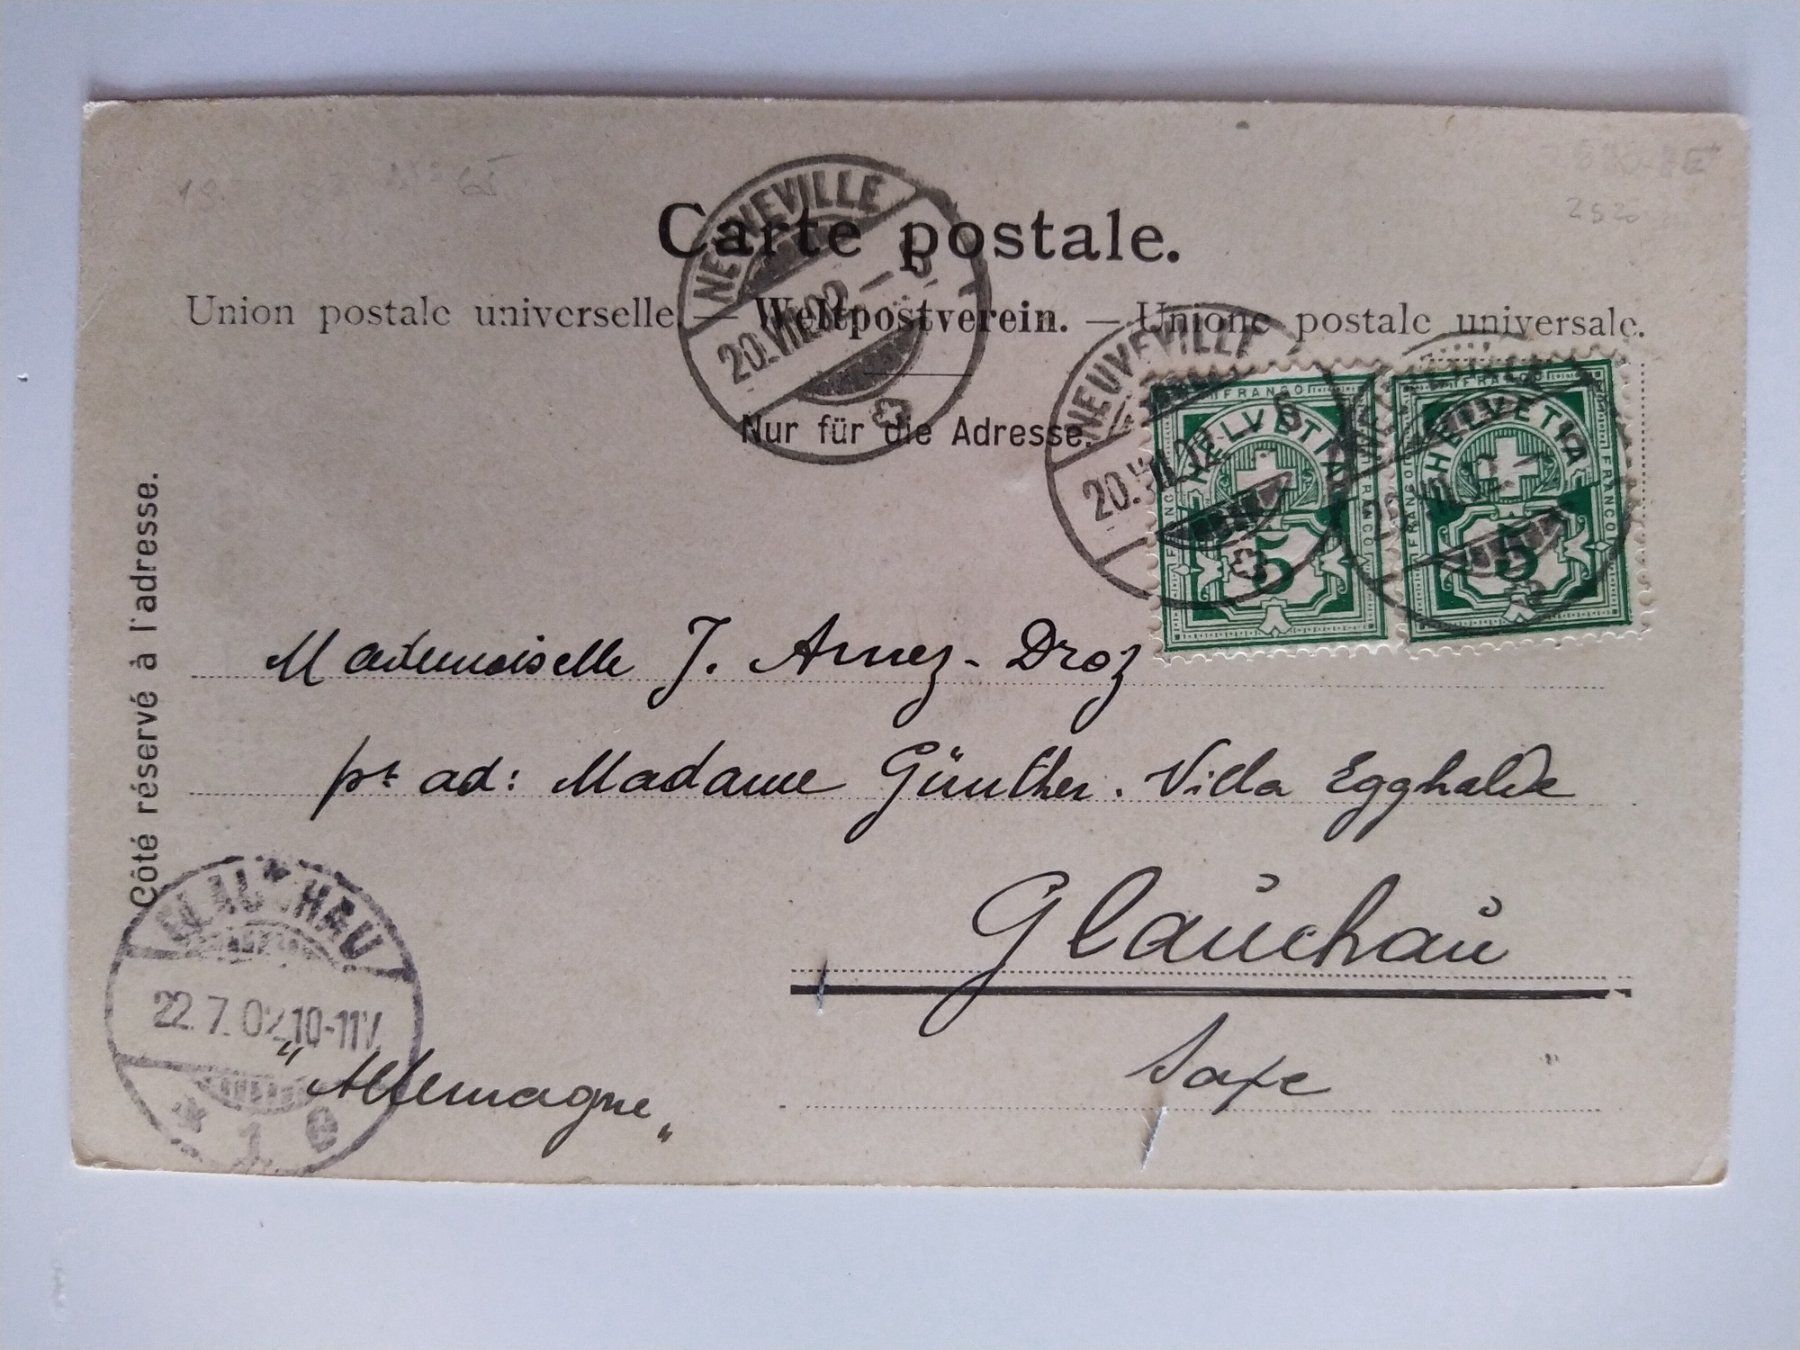 Carte postale.
Union postale universelle. — Weltpostverein. — Unione postale universale.
Nur für die Adresse.
Côté réservé à l'adresse.
NEUVEVILLE
20.VII.02.-8
NEUVEVILLE
20.VII.02
FRANCO
HELVETIA
5
FRANCO
HELVETIA
5
Mademoiselle J. Arnez-Droz
pr ad: Madame Günther. Villa Egghalde
Glauchau
Saxe
"Allemagne"
GLAUCHAU
22.7.02.10-11V.
* 1 e
2520